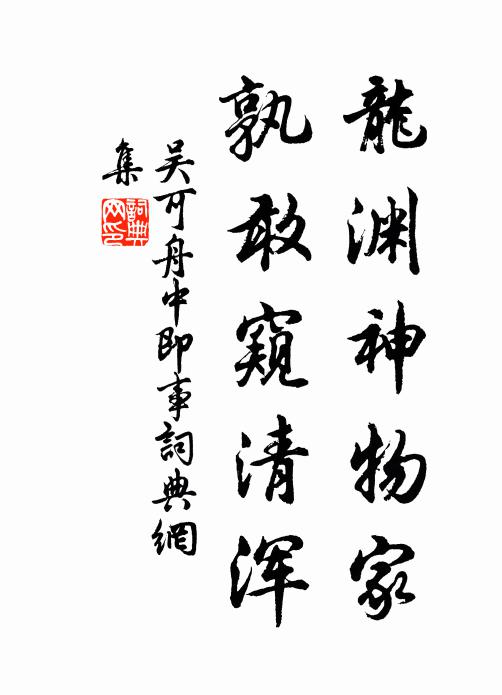 龍渊神物家
孰敢窺清浑
吴可舟中即事詞典網
集
詞典網印